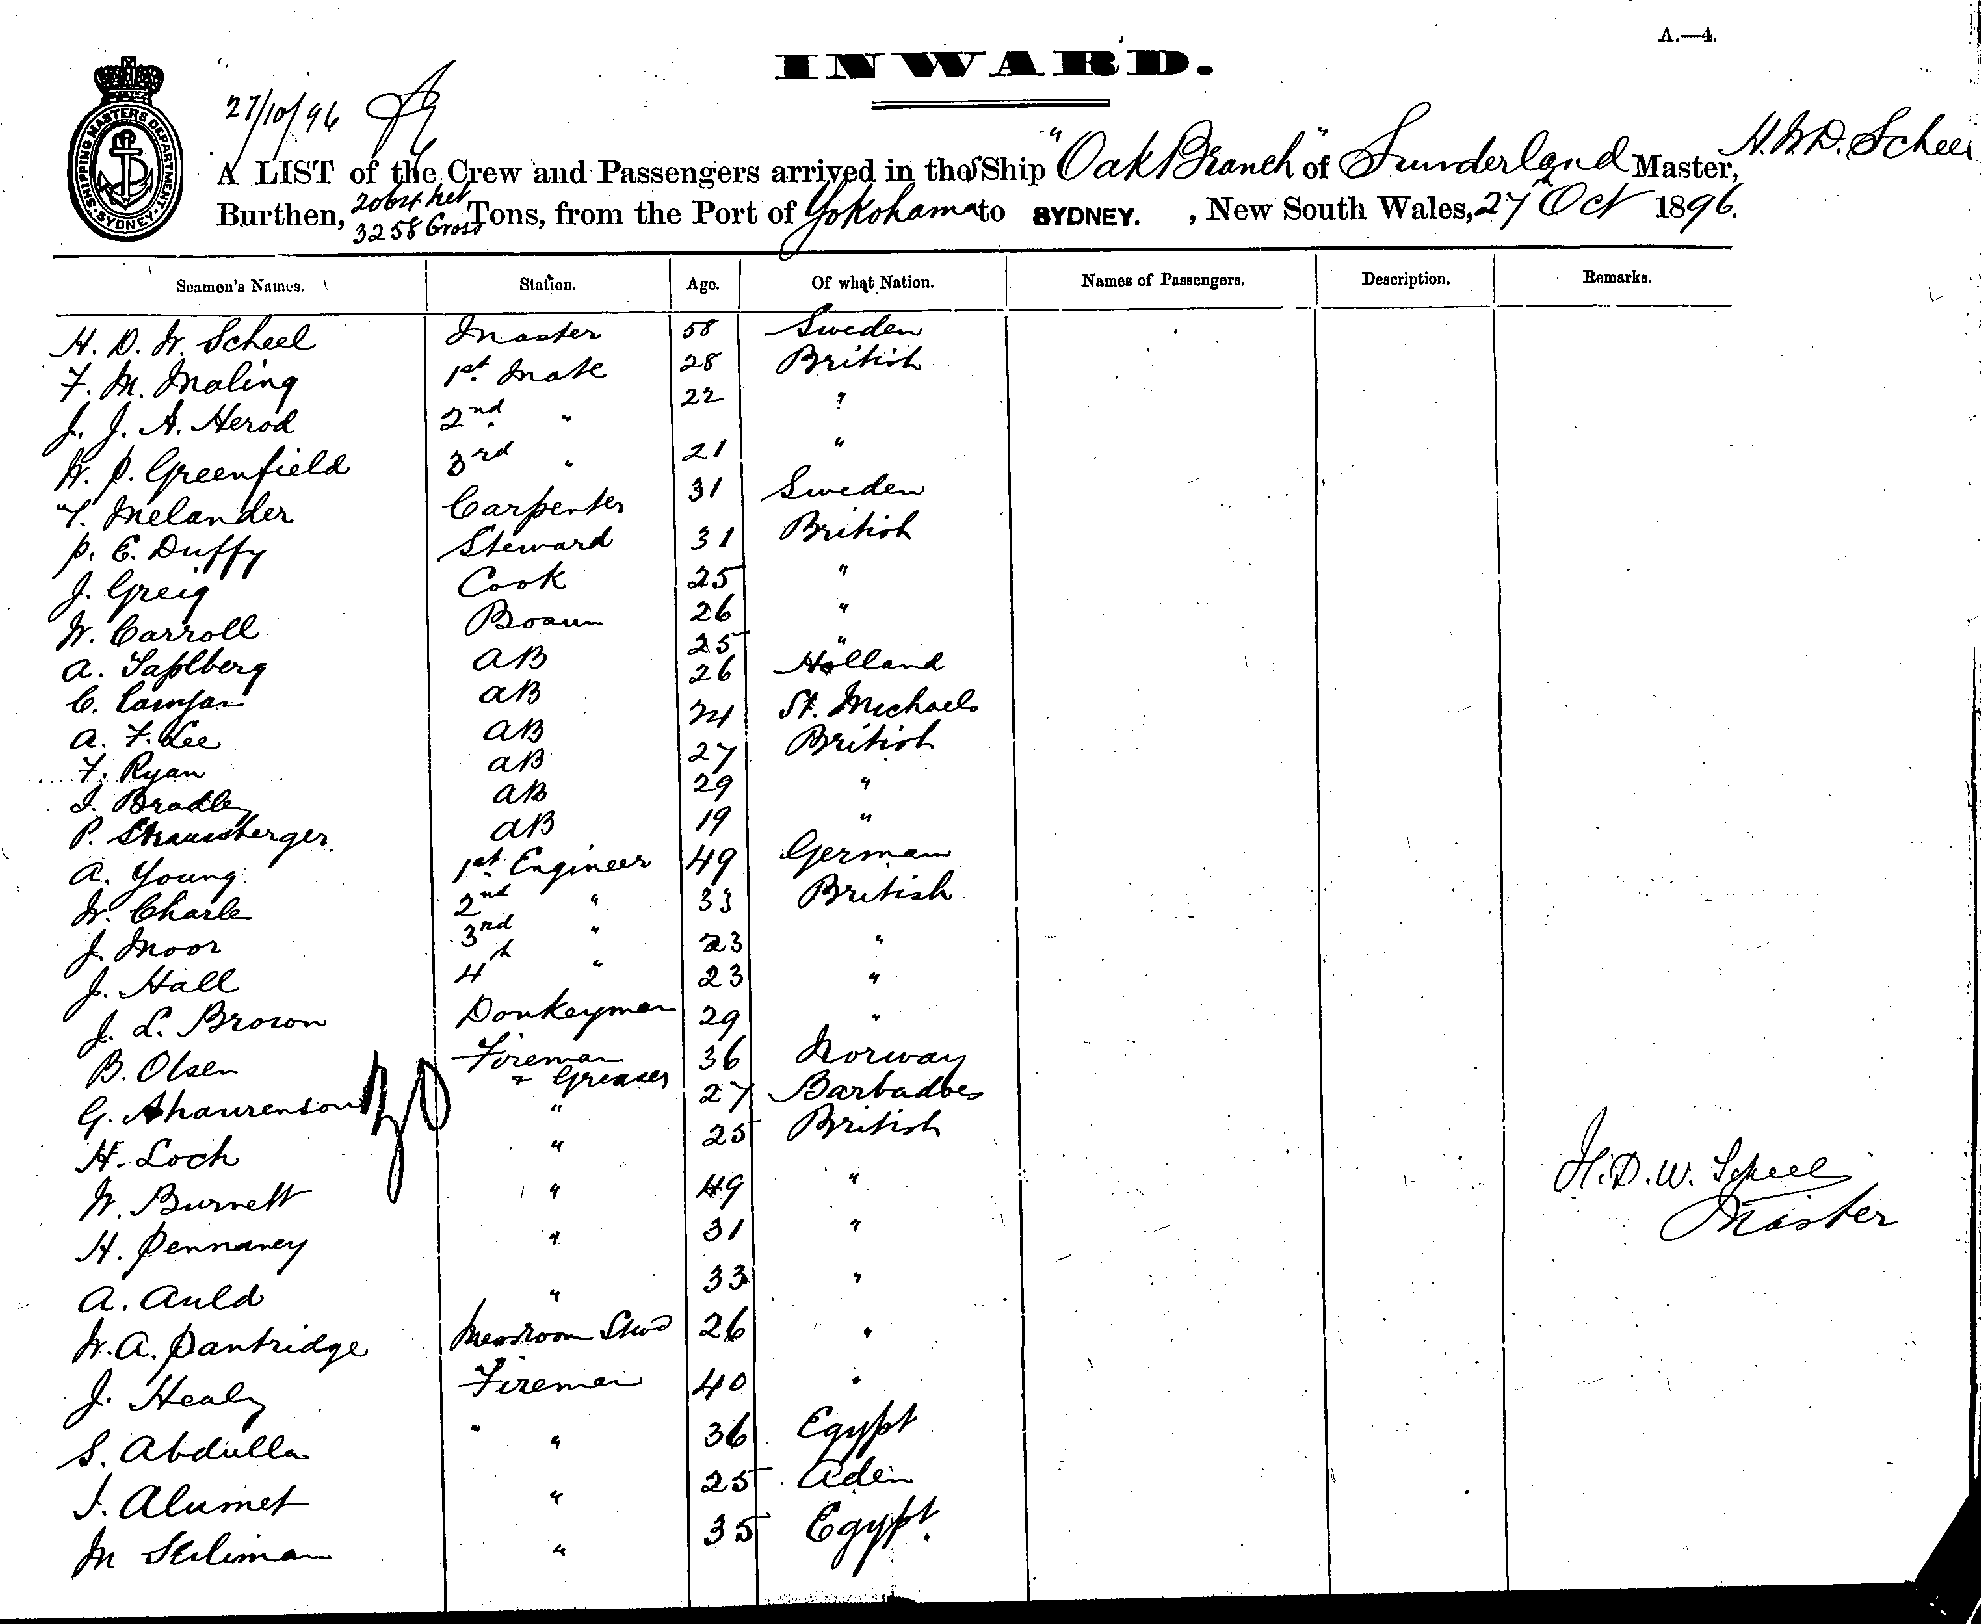 A.—4.
INWARD.
SHIPPING MASTERS DEPARTMENT SYDNEY
27/10/96
A LIST of the Crew and Passengers arrived in the SShip "Oak Branch" of Sunderland Master, H. W. D. Scheel
Burthen, 2064 net 3258 Gross Tons, from the Port of Yokohama to SYDNEY. , New South Wales, 27 Oct 1896.
Seamen's Names. Station. Age. Of what Nation. Names of Passengers. Description. Remarks.
H. D. W. Scheel Master 58 Sweden
F. M. Maling 1st. Mate 28 British
J. J. A. Herod 2nd " 22 "
W. P. Greenfield 3rd " 21 "
F. Melander Carpenter 31 Sweden
P. E. Duffy Steward 31 British
J. Greig Cook 25 "
W. Carroll Bosun 26 "
A. AB 25 "
C. AB 26 Holland
A. F. Lee AB 24 St. Michaels
F. Ryan AB 27 British
J. Bradley AB 29 "
P. Straussberger AB 19 "
A. Young 1st Engineer 49 German
W. Charle 2nd " 33 British
J. Moor 3rd " 23 "
J. Hall 4th " 23 "
J. L. Brown Donkeyman 29 "
B. Olsen Fireman & Greaser 36 Norway
G. " 27 Barbadoes
H. Loch " 25 British
W. Burnett " 49 "
H. Pennaney " 31 "
A. Auld " 33 "
W. A. Pantridge Messroom Stwd 26 "
J. Healy Fireman 40 "
S. Abdulla " " 36 Egypt
J. Alumet " 25 Aden
M Suliman " 35 Egypt.
30
H. D. W. Scheel
Master